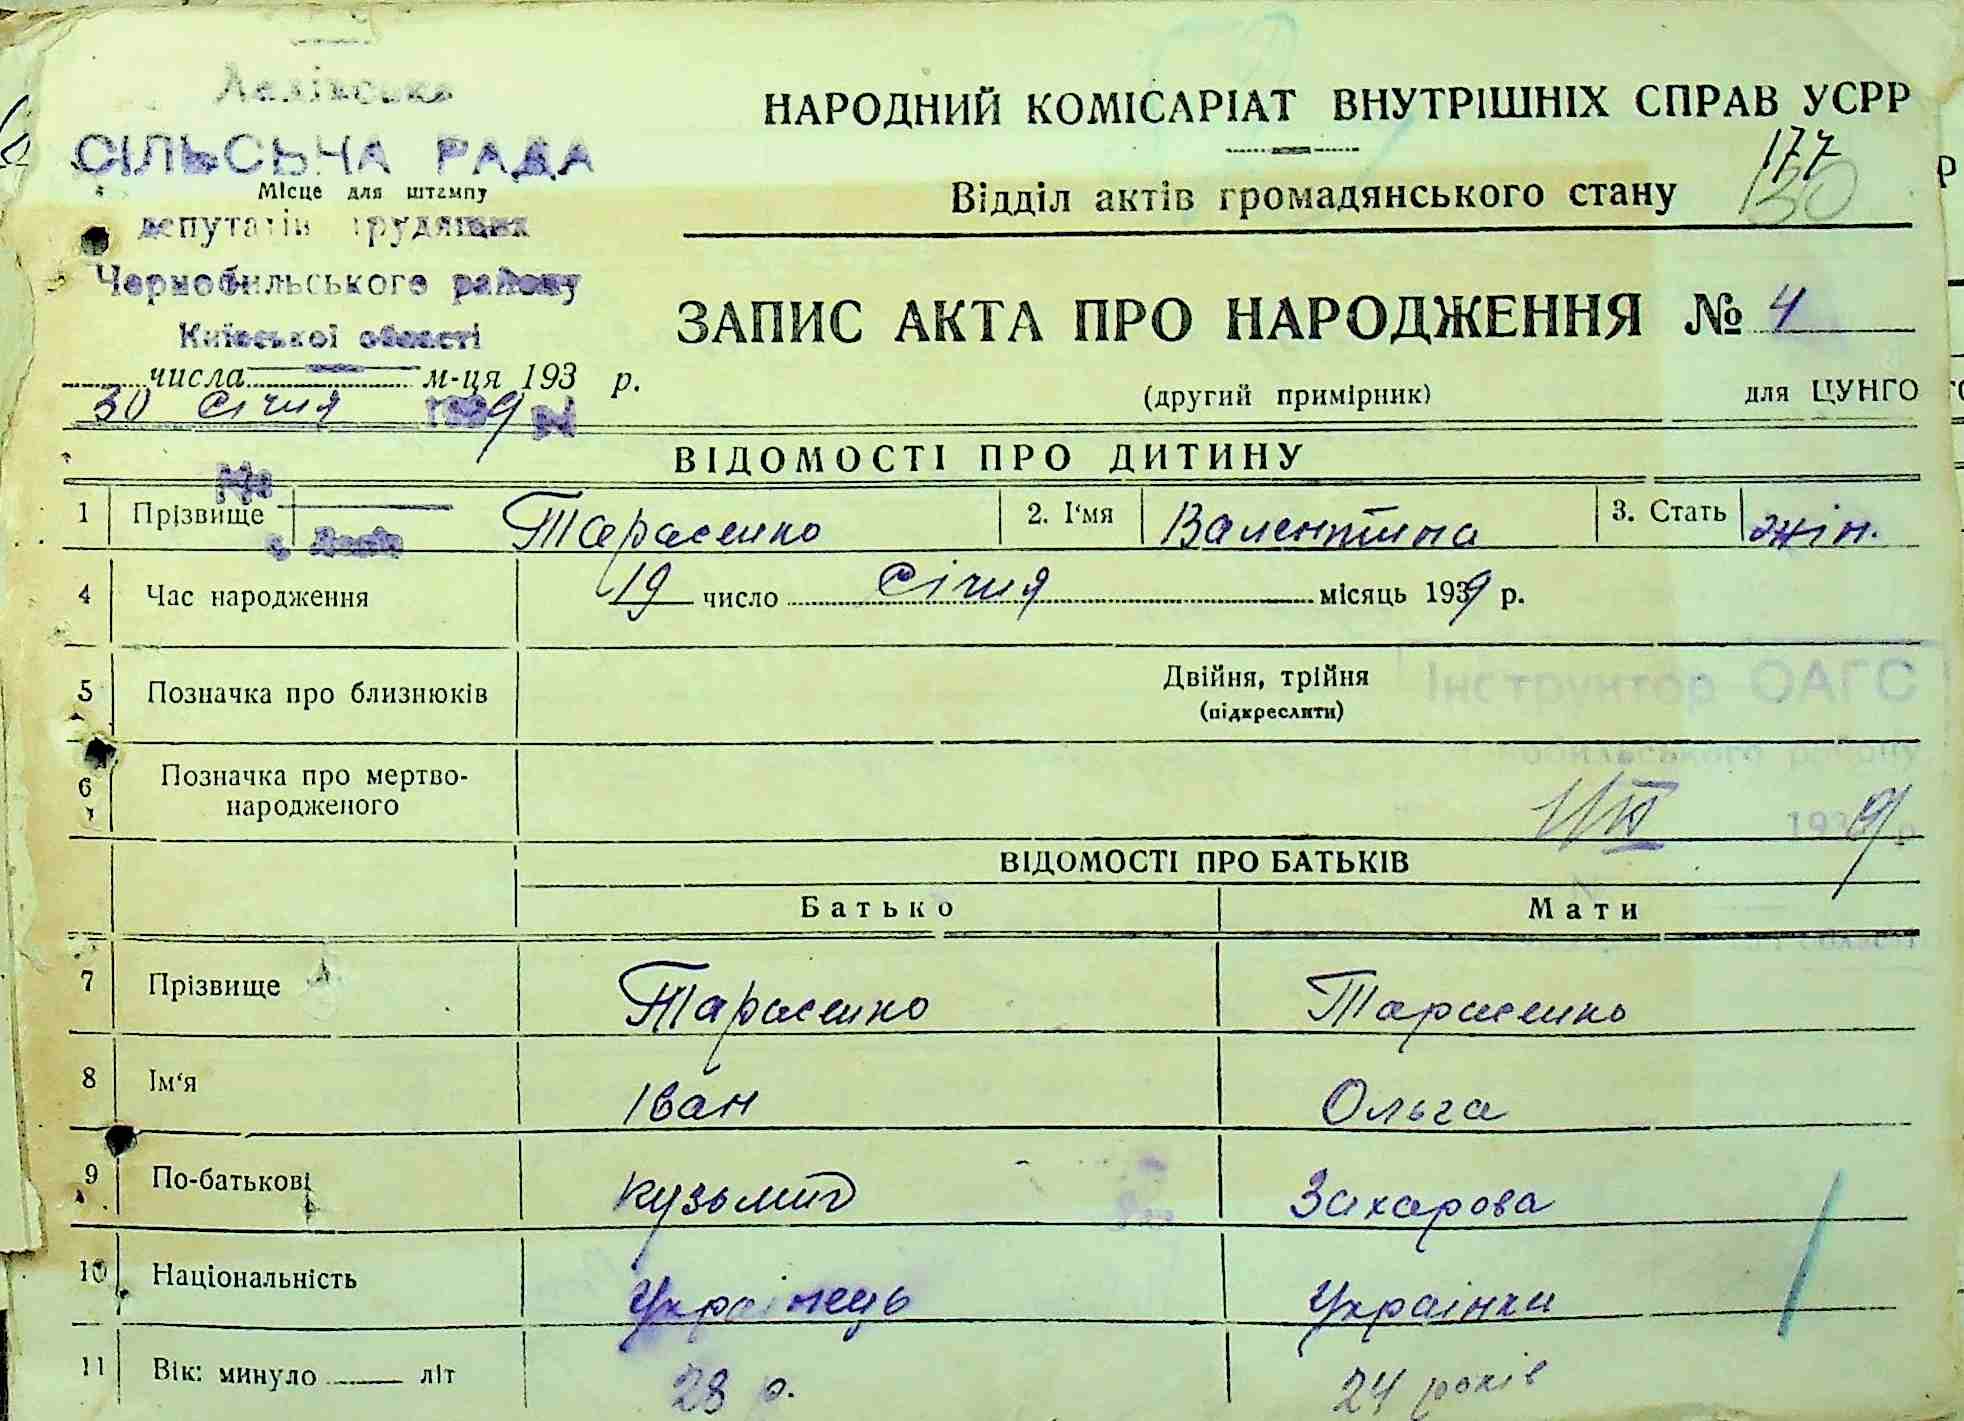 Лелівська
СІЛЬСЬКА РАДА
Місце для штампу
депутатів трудящих
Чернобильського району
Київської області
числа м-ця 193 р.
30 січня 1939 р.
№
с. Лелів
НАРОДНИЙ КОМІСАРІАТ ВНУТРІШНІХ СПРАВ УСРР
177
30
Відділ актів громадянського стану
ЗАПИС АКТА ПРО НАРОДЖЕННЯ № 4
(другий примірник) для ЦУНГО
ВІДОМОСТІ ПРО ДИТИНУ
1 Прізвище Тарасенко 2. І'мя Валентина 3. Стать жін.
4 Час народження 19 число січня місяць 1939 р.
5 Позначка про близнюків Двійня, трійня
(підкреслити)
Інструктор ОАГС
обильського району
6 Позначка про мертво-
народженого
1939 р
ВІДОМОСТІ ПРО БАТЬКІВ
Батько Мати
області
7 Прізвище Тарасенко Тарасенко
8 Ім'я Іван Ольга
9 По-батькові Кузьмич Захарова
10 Національність Українець Українка
11 Вік: минуло літ 28 р. 24 років